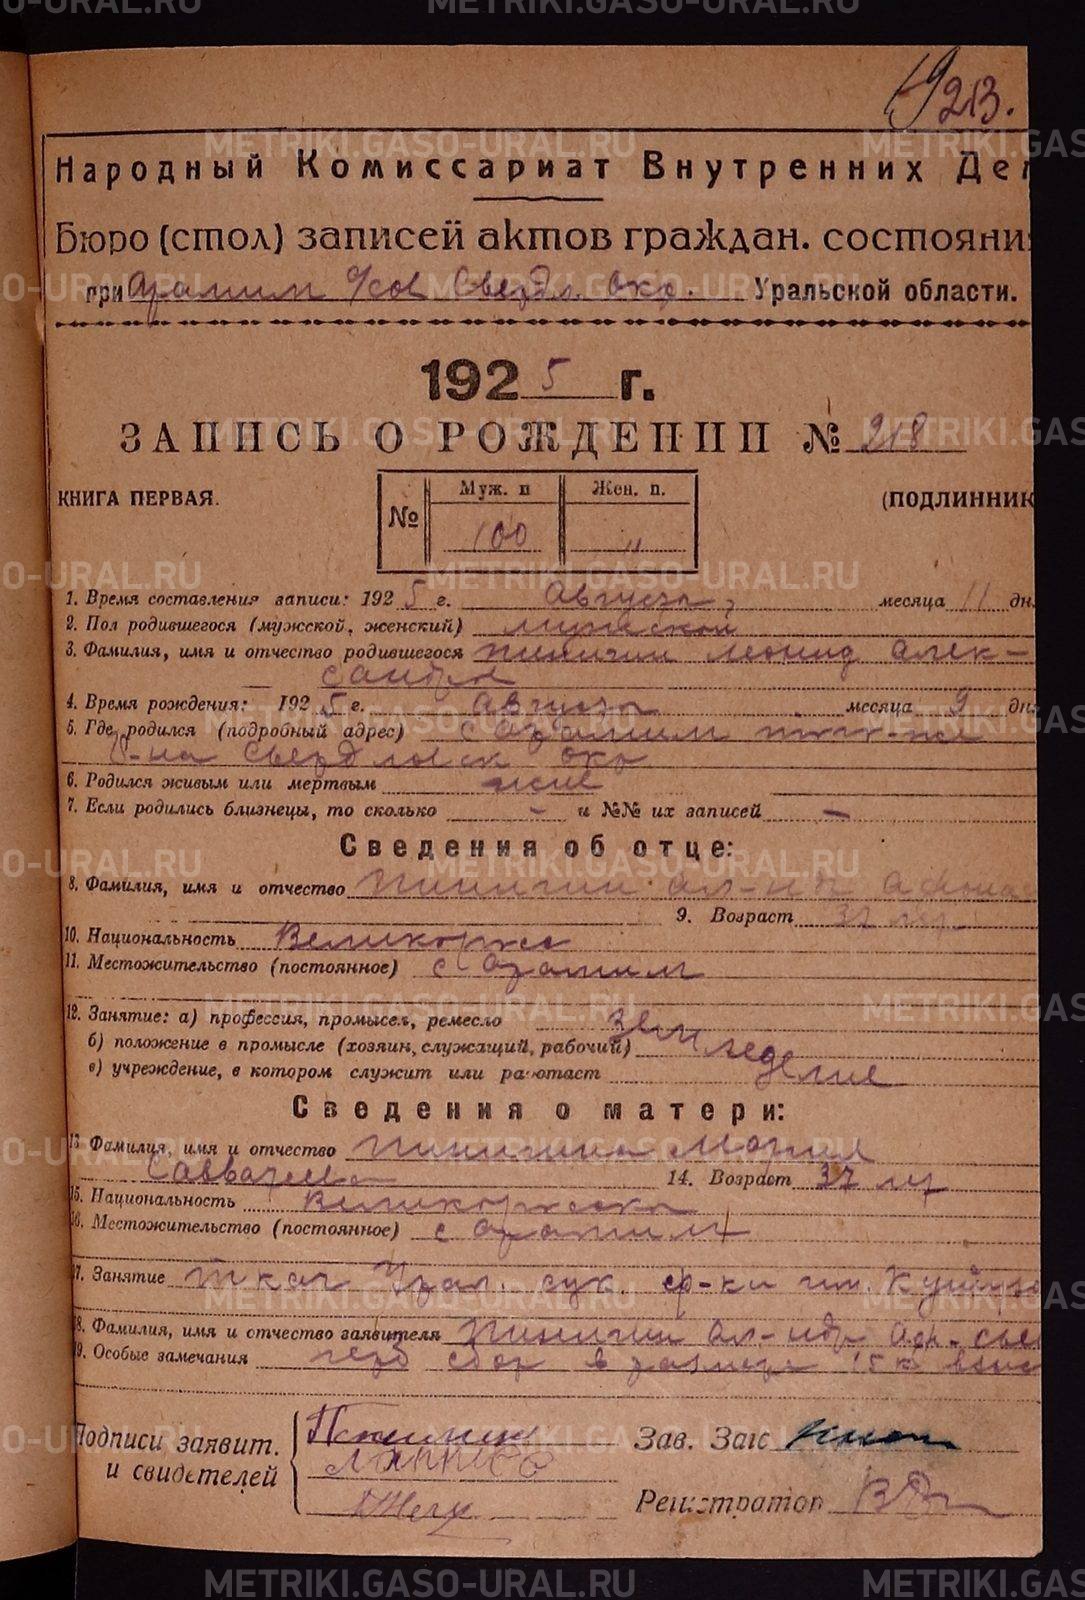 19 213.
Народный Комиссариат Внутренних Дел
Бюро (стол) записей актов граждан. состояния
при Арамил Свердл. Окр. Уральской области.
1925 г.
ЗАПИСЬ О РОЖДЕНИИ № 218
КНИГА ПЕРВАЯ. (ПОДЛИННИК
Муж. п Жен. п.
№ 100 "
1. Время составления записи: 1925 г. Августа месяца 11 дн.
2. Пол родившегося (мужской, женский) мужской
3. Фамилия, имя и отчество родившегося Пинигин Леонид Алек-
сандр
4. Время рождения: 1925 г. Августа месяца 9 дн.
5. Где родился (подробный адрес) с Арамил
р-на Свердловск окр
6. Родился живым или мертвым жив
7. Если родились близнецы, то сколько - и №№ их записей -
Сведения об отце:
8. Фамилия, имя и отчество Пинигин Ал-ндр Афонас
9. Возраст 37 лет
10. Национальность Великоросс
11. Местожительство (постоянное) с Арамил
12. Занятие: а) профессия, промысел, ремесло Зем
б) положение в промысле (хозяин, служащий, рабочий) леде
в) учреждение, в котором служит или работает лие
Сведения о матери:
13 Фамилия, имя и отчество Пинигина Мария
Савватеева 14. Возраст 37 лет
15. Национальность Великоросска
16. Местожительство (постоянное) с Арамил
17. Занятие ткач Урал. сук. ф-ки им. Куйбыше
18. Фамилия, имя и отчество заявителя Пинигин Ал-ндр Аф.
19. Особые замечания герб сбор в размере 15 к взыс
Подписи заявит.
и свидетелей
Пинигин
Зав. Загс
Регистратор
METRIKI.GASO-URAL.RU